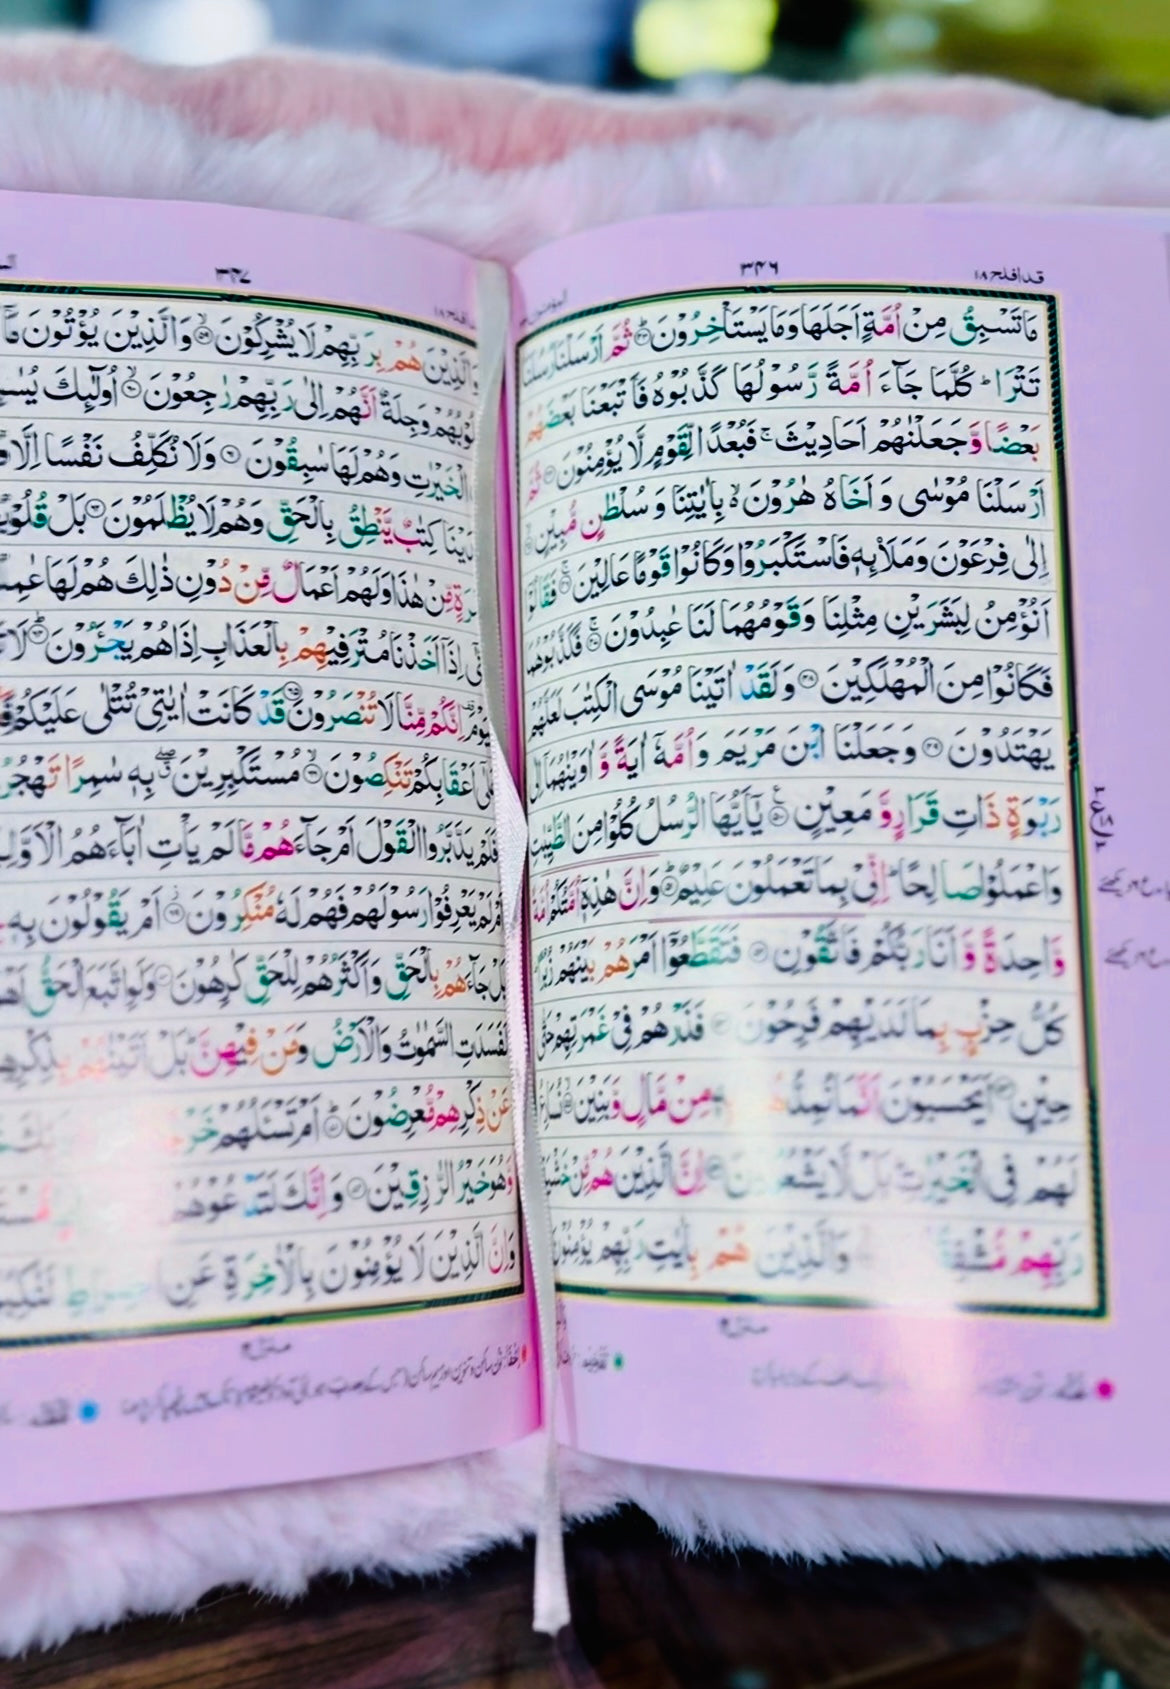 قدافلح ١٨
٣٤٦
مَا تَسْبِقُ مِنْ اُمَّةٍ اَجَلَهَا وَمَا يَسْتَاْخِرُوْنَ ؕ۴۳ ثُمَّ اَرْسَلْنَا رُسُلَنَا
تَتْرَا ؕ كُلَّمَا جَآءَ اُمَّةً رَّسُوْلُهَا كَذَّبُوْهُ فَاَتْبَعْنَا بَعْضَهُمْ
بَعْضًا وَّجَعَلْنٰهُمْ اَحَادِيْثَ ۚ فَبُعْدًا لِّقَوْمٍ لَّا يُؤْمِنُوْنَ ۴۴ ثُمَّ
اَرْسَلْنَا مُوْسٰى وَ اَخَاهُ هٰرُوْنَ ۙ۬ بِاٰيٰتِنَا وَ سُلْطٰنٍ مُّبِيْنٍ
اِلٰى فِرْعَوْنَ وَمَلَا۟ئِهٖ فَاسْتَكْبَرُوْا وَكَانُوْا قَوْمًا عَالِيْنَ ۚ فَقَالُوْٓا
اَنُؤْمِنُ لِبَشَرَيْنِ مِثْلِنَا وَقَوْمُهُمَا لَنَا عٰبِدُوْنَ ۚ فَكَذَّبُوْهُمَا
فَكَانُوْا مِنَ الْمُهْلَكِيْنَ ۴۸ وَلَقَدْ اٰتَيْنَا مُوْسَى الْكِتٰبَ لَعَلَّهُمْ
يَهْتَدُوْنَ ۴۹ وَجَعَلْنَا ابْنَ مَرْيَمَ وَاُمَّهٗٓ اٰيَةً وَّ اٰوَيْنٰهُمَآ اِلٰى
رَبْوَةٍ ذَاتِ قَرَارٍ وَّمَعِيْنٍ ۵۰ يٰٓاَيُّهَا الرُّسُلُ كُلُوْا مِنَ الطَّيِّبٰتِ
وَاعْمَلُوْا صَالِحًا ؕ اِنِّيْ بِمَا تَعْمَلُوْنَ عَلِيْمٌ ؕ۵۱ وَاِنَّ هٰذِهٖٓ اُمَّتُكُمْ اُمَّةً
وَّاحِدَةً وَّ اَنَا رَبُّكُمْ فَاتَّقُوْنِ ۵۲ فَتَقَطَّعُوْٓا اَمْرَهُمْ بَيْنَهُمْ زُبُرًا
كُلُّ حِزْبٍۭ بِمَا لَدَيْهِمْ فَرِحُوْنَ ۵۳ فَذَرْهُمْ فِيْ غَمْرَتِهِمْ حَتّٰى
حِيْنٍ ۵۴ اَيَحْسَبُوْنَ اَنَّمَا نُمِدُّهُمْ بِهٖ مِنْ مَّالٍ وَّبَنِيْنَ ۙ۵۵ نُسَارِعُ
لَهُمْ فِي الْخَيْرٰتِ ؕ بَلْ لَّا يَشْعُرُوْنَ ۵۶ اِنَّ الَّذِيْنَ هُمْ مِّنْ خَشْيَةِ
رَبِّهِمْ مُّشْفِقُوْنَ وَالَّذِيْنَ هُمْ بِاٰيٰتِ رَبِّهِمْ يُؤْمِنُوْنَ
٣٤٧
وَالَّذِيْنَ هُمْ بِرَبِّهِمْ لَا يُشْرِكُوْنَ ۙ۵۹ وَالَّذِيْنَ يُؤْتُوْنَ مَآ
قُلُوْبُهُمْ وَجِلَةٌ اَنَّهُمْ اِلٰى رَبِّهِمْ رٰجِعُوْنَ ۙ۶۰ اُولٰٓئِكَ
الْخَيْرٰتِ وَهُمْ لَهَا سٰبِقُوْنَ ۶۱ وَلَا نُكَلِّفُ نَفْسًا اِلَّا
لَدَيْنَا كِتٰبٌ يَّنْطِقُ بِالْحَقِّ وَهُمْ لَا يُظْلَمُوْنَ ۶۲ بَلْ قُلُوْبُهُمْ
غَمْرَةٍ مِّنْ هٰذَا وَلَهُمْ اَعْمَالٌ مِّنْ دُوْنِ ذٰلِكَ هُمْ لَهَا
حَتّٰٓى اِذَآ اَخَذْنَا مُتْرَفِيْهِمْ بِالْعَذَابِ اِذَا هُمْ يَجْـَٔرُوْنَ ؕ۶۴ لَا
الْيَوْمَ اِنَّكُمْ مِّنَّا لَا تُنْصَرُوْنَ ۶۵ قَدْ كَانَتْ اٰيٰتِيْ تُتْلٰى عَلَيْكُمْ
عَلٰٓى اَعْقَابِكُمْ تَنْكِصُوْنَ ۙ۶۶ مُسْتَكْبِرِيْنَ ۖۗ بِهٖ سٰمِرًا تَهْجُرُوْنَ
اَفَلَمْ يَدَّبَّرُوا الْقَوْلَ اَمْ جَآءَهُمْ مَّا لَمْ يَاْتِ اٰبَآءَهُمُ الْاَوَّلِيْنَ
اَمْ لَمْ يَعْرِفُوْا رَسُوْلَهُمْ فَهُمْ لَهٗ مُنْكِرُوْنَ ۶۹ اَمْ يَقُوْلُوْنَ بِهٖ
بَلْ جَآءَهُمْ بِالْحَقِّ وَاَكْثَرُهُمْ لِلْحَقِّ كٰرِهُوْنَ ۷۰ وَلَوِ اتَّبَعَ الْحَقُّ
لَفَسَدَتِ السَّمٰوٰتُ وَالْاَرْضُ وَمَنْ فِيْهِنَّ ؕ بَلْ اَتَيْنٰهُمْ بِذِكْرِهِمْ
عَنْ ذِكْرِهِمْ مُّعْرِضُوْنَ ؕ۷۱ اَمْ تَسْـَٔلُهُمْ خَرْجًا
وَّهُوَ خَيْرُ الرّٰزِقِيْنَ ۷۲ وَاِنَّكَ لَتَدْعُوْهُمْ
وَاِنَّ الَّذِيْنَ لَا يُؤْمِنُوْنَ بِالْاٰخِرَةِ عَنِ الصِّرَاطِ لَنٰكِبُوْنَ